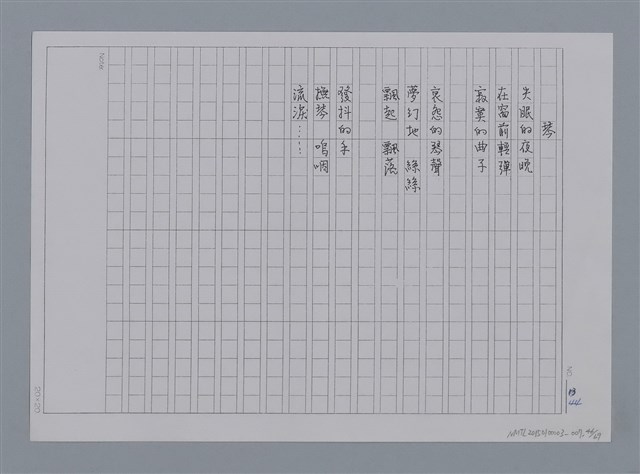 琴
失眠的夜晚
在窗前輕彈
寂寞的曲子
哀怨的琴聲
夢幻地 絲絲
飄起 飄落
發抖的手
撫琴 嗚咽
流淚……
20×20
44